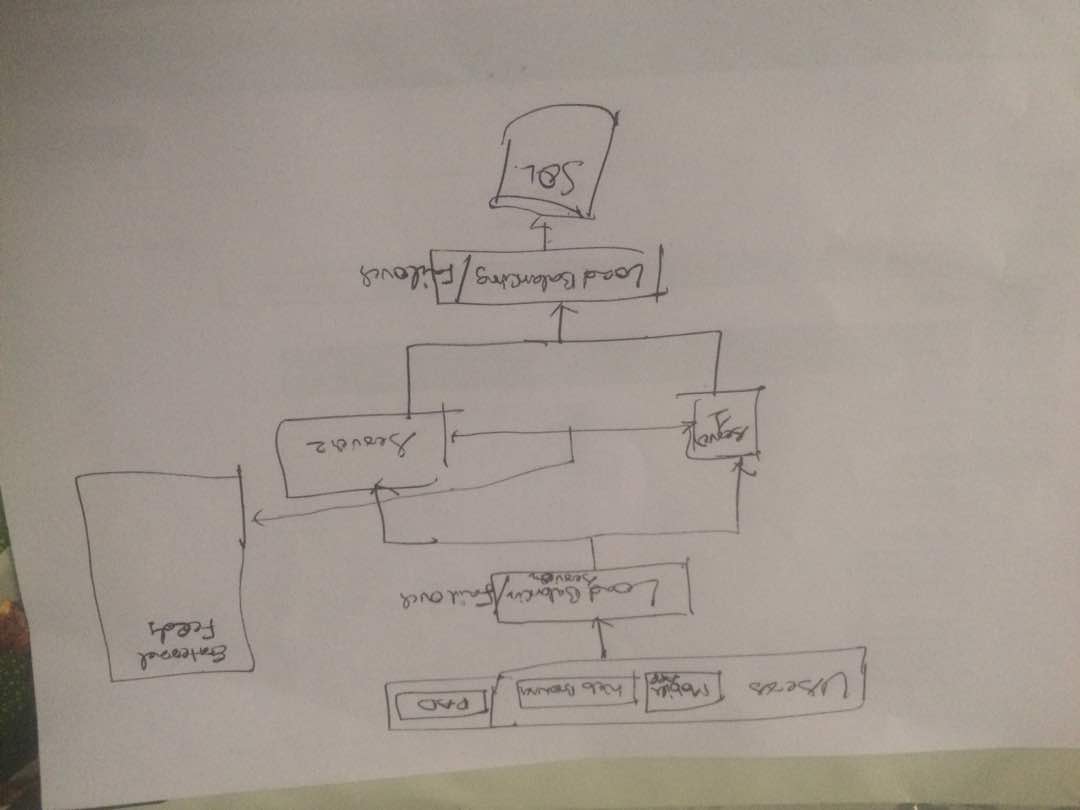 Users
Mobile
App
Web Browser
PAD
External
Feeds
Load Balancing/Failover
Server
Server
1
Server 2
Load Balancing/Failover
SQL